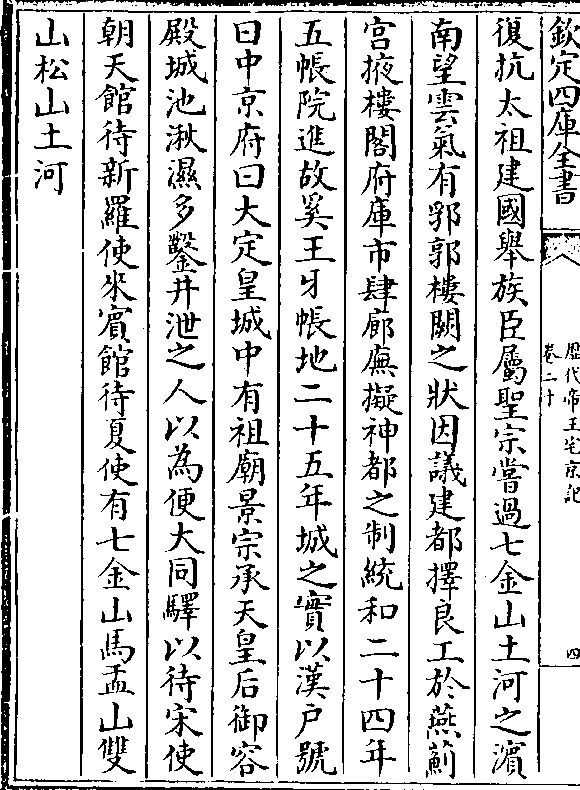 欽定四庫全書
歷代帝王宅京記
卷二十
四
復抗太祖建國舉族臣屬聖宗嘗過七金山土河之濱
南望雲氣有郛郭樓闕之狀因議建都擇良工於燕薊
宮掖樓閣府庫市肆廊廡擬神都之制統和二十四年
五帳院進故奚王牙帳地二十五年城之實以漢戶號
曰中京府曰大定皇城中有祖廟景宗承天皇后御容
殿城池湫濕多鑿井泄之人以為便大同驛以待宋使
朝天館待新羅使來賓館待夏使有七金山馬盂山雙
山松山土河